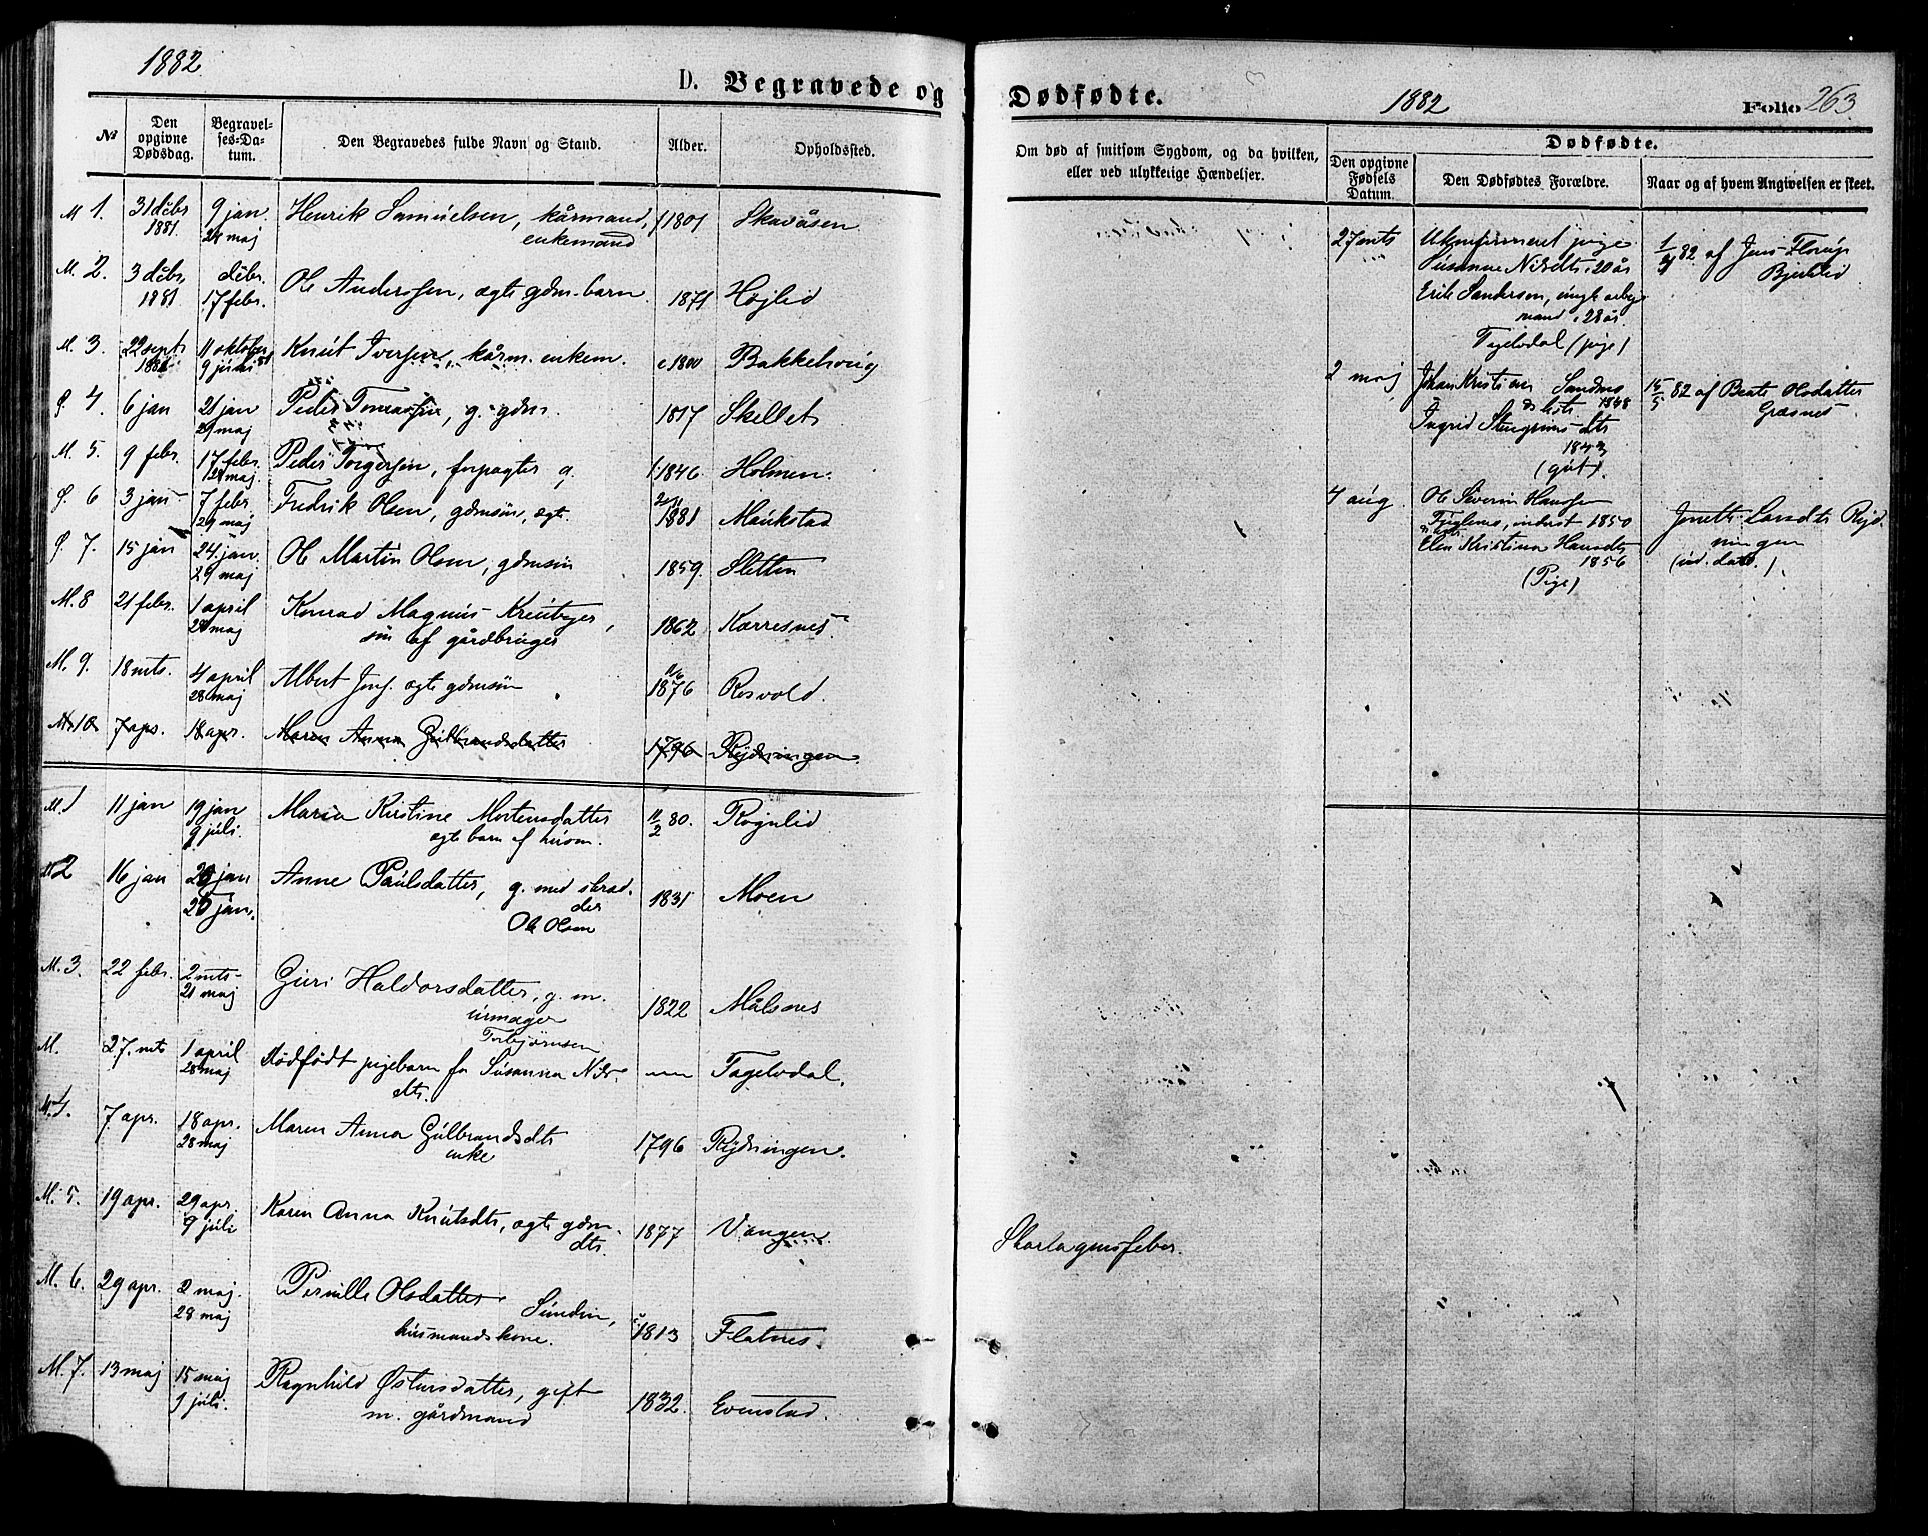 1882
D. Begravede og
№
Den opgivne Dødsdag.
Begravel-ses-Da-tum.
Den Begravedes fulde Navn og Stand.
Alder.
Opholdssted.
M 1. 31 dēbr 1881. 9 jan 28 maj Henrik Samuelsen, kårmand, enkemand f 1801 Skavåsen
M. 2. 3 dēbr 1881 dēbr. 17 febr. Ole Anderssen, ægte gdm. barn 1871 Højlid
M. 3. 22 sept 1881 11 oktober 9 juni Knut Iversen, kårm. enkem. c 1800 Bakkehoug
S. 4. 6 jan 21 jan 29 maj Peder Tomassen, g. gdm. 1817 Skellet
M. 5. 9 febr. 17 febr. 28 maj. Peder Torgersen, forpagter g. f. 1846. Holmen.
S. 6 3 jan 7 febr 29 maj Fredrik Olsen, gdmsøn, ægte. 1881 Maukstad
S. 7. 15 jan 24. jan. 29 maj Ole Martin Olsen, gdmsøn 1859. Sletten
M. 8 21 febr. 1 april 28 maj Konrad Magnus Kreutzer, søn af gårdbruger 1862 Kærresnes
M. 9. 18 mts. 4 april 28 maj Albert Jens. ægte gdmsøn 11/6 1876 Rosvold.
M. 10 7 apr. 18 apr. Maren Anna Gulbrandsdatter 1796 Rydningen.
M. 1 11 jan 19 jan 9 juli Maria Kirstine Mortensdatter ægte barn af husm. 11/2 80. Rognlid
M 2 16 jan 25 jan 25 jan. Anne Paulsdatter, g. med skrædder Ole Olsen 1831 Moen
M. 3. 22 febr. 2 mts 21 maj Guri Haldorsdatter, g. m. urmager Torbjørnsen 1822 Målsnes
M. 27. mts 1 april 28 maj Dødfødt pigebarn fra Susanna Nilsdts. Fagelvdal.
M. 4. 7 apr. 18 apr. 28 maj Maren Anna Gulbrandsdts enke 1796 Rydningen.
M. 5. 19 apr. 29 apr. 9 juli Karen Anna Knutsdts, ægte gdm. dts. 1877 Vangen.
M. 6. 29 apr. 2 maj. 28 maj Pernille Olsdatter Sundin, husmandskone. 1813 Flatnes.
M. 7. 13 maj 15 maj 9 juli. Ragnhild Østensdatter, gift m. gårdmand 1832. Evenstad.
Dødfødte.
1882
Folio 263
Om død af smitsom Sygdom, og da hvilken,
eller ved ulykkelige Hændelser.
Dødfødte.
Den opgivne Fødsels Datum.
Den Dødfødtes Forældre.
Naar og af hvem Angivelsen er skeet.
27 mts Ukonfirmeret pige 82 af Jens Florup
Susanne Nilsdts. 20 år Bjerklid
Erik Sandersen, ungk. arbejdsmand, 28 år
Fagelvdal (pige)
2 maj Johan Kristian Sandmo 1848 15/5 82 af Berte Olsdatter
Ingrid Stengrims-dts 1843 Græsnes.
(gut).
4 aug Ole Severin Hanssen Jonette Larsdts Rydningen
inderst 1850 (ud. dato.).
Elen Kristina Hansdts 1856
(Pige)
Skarlagensfeber.